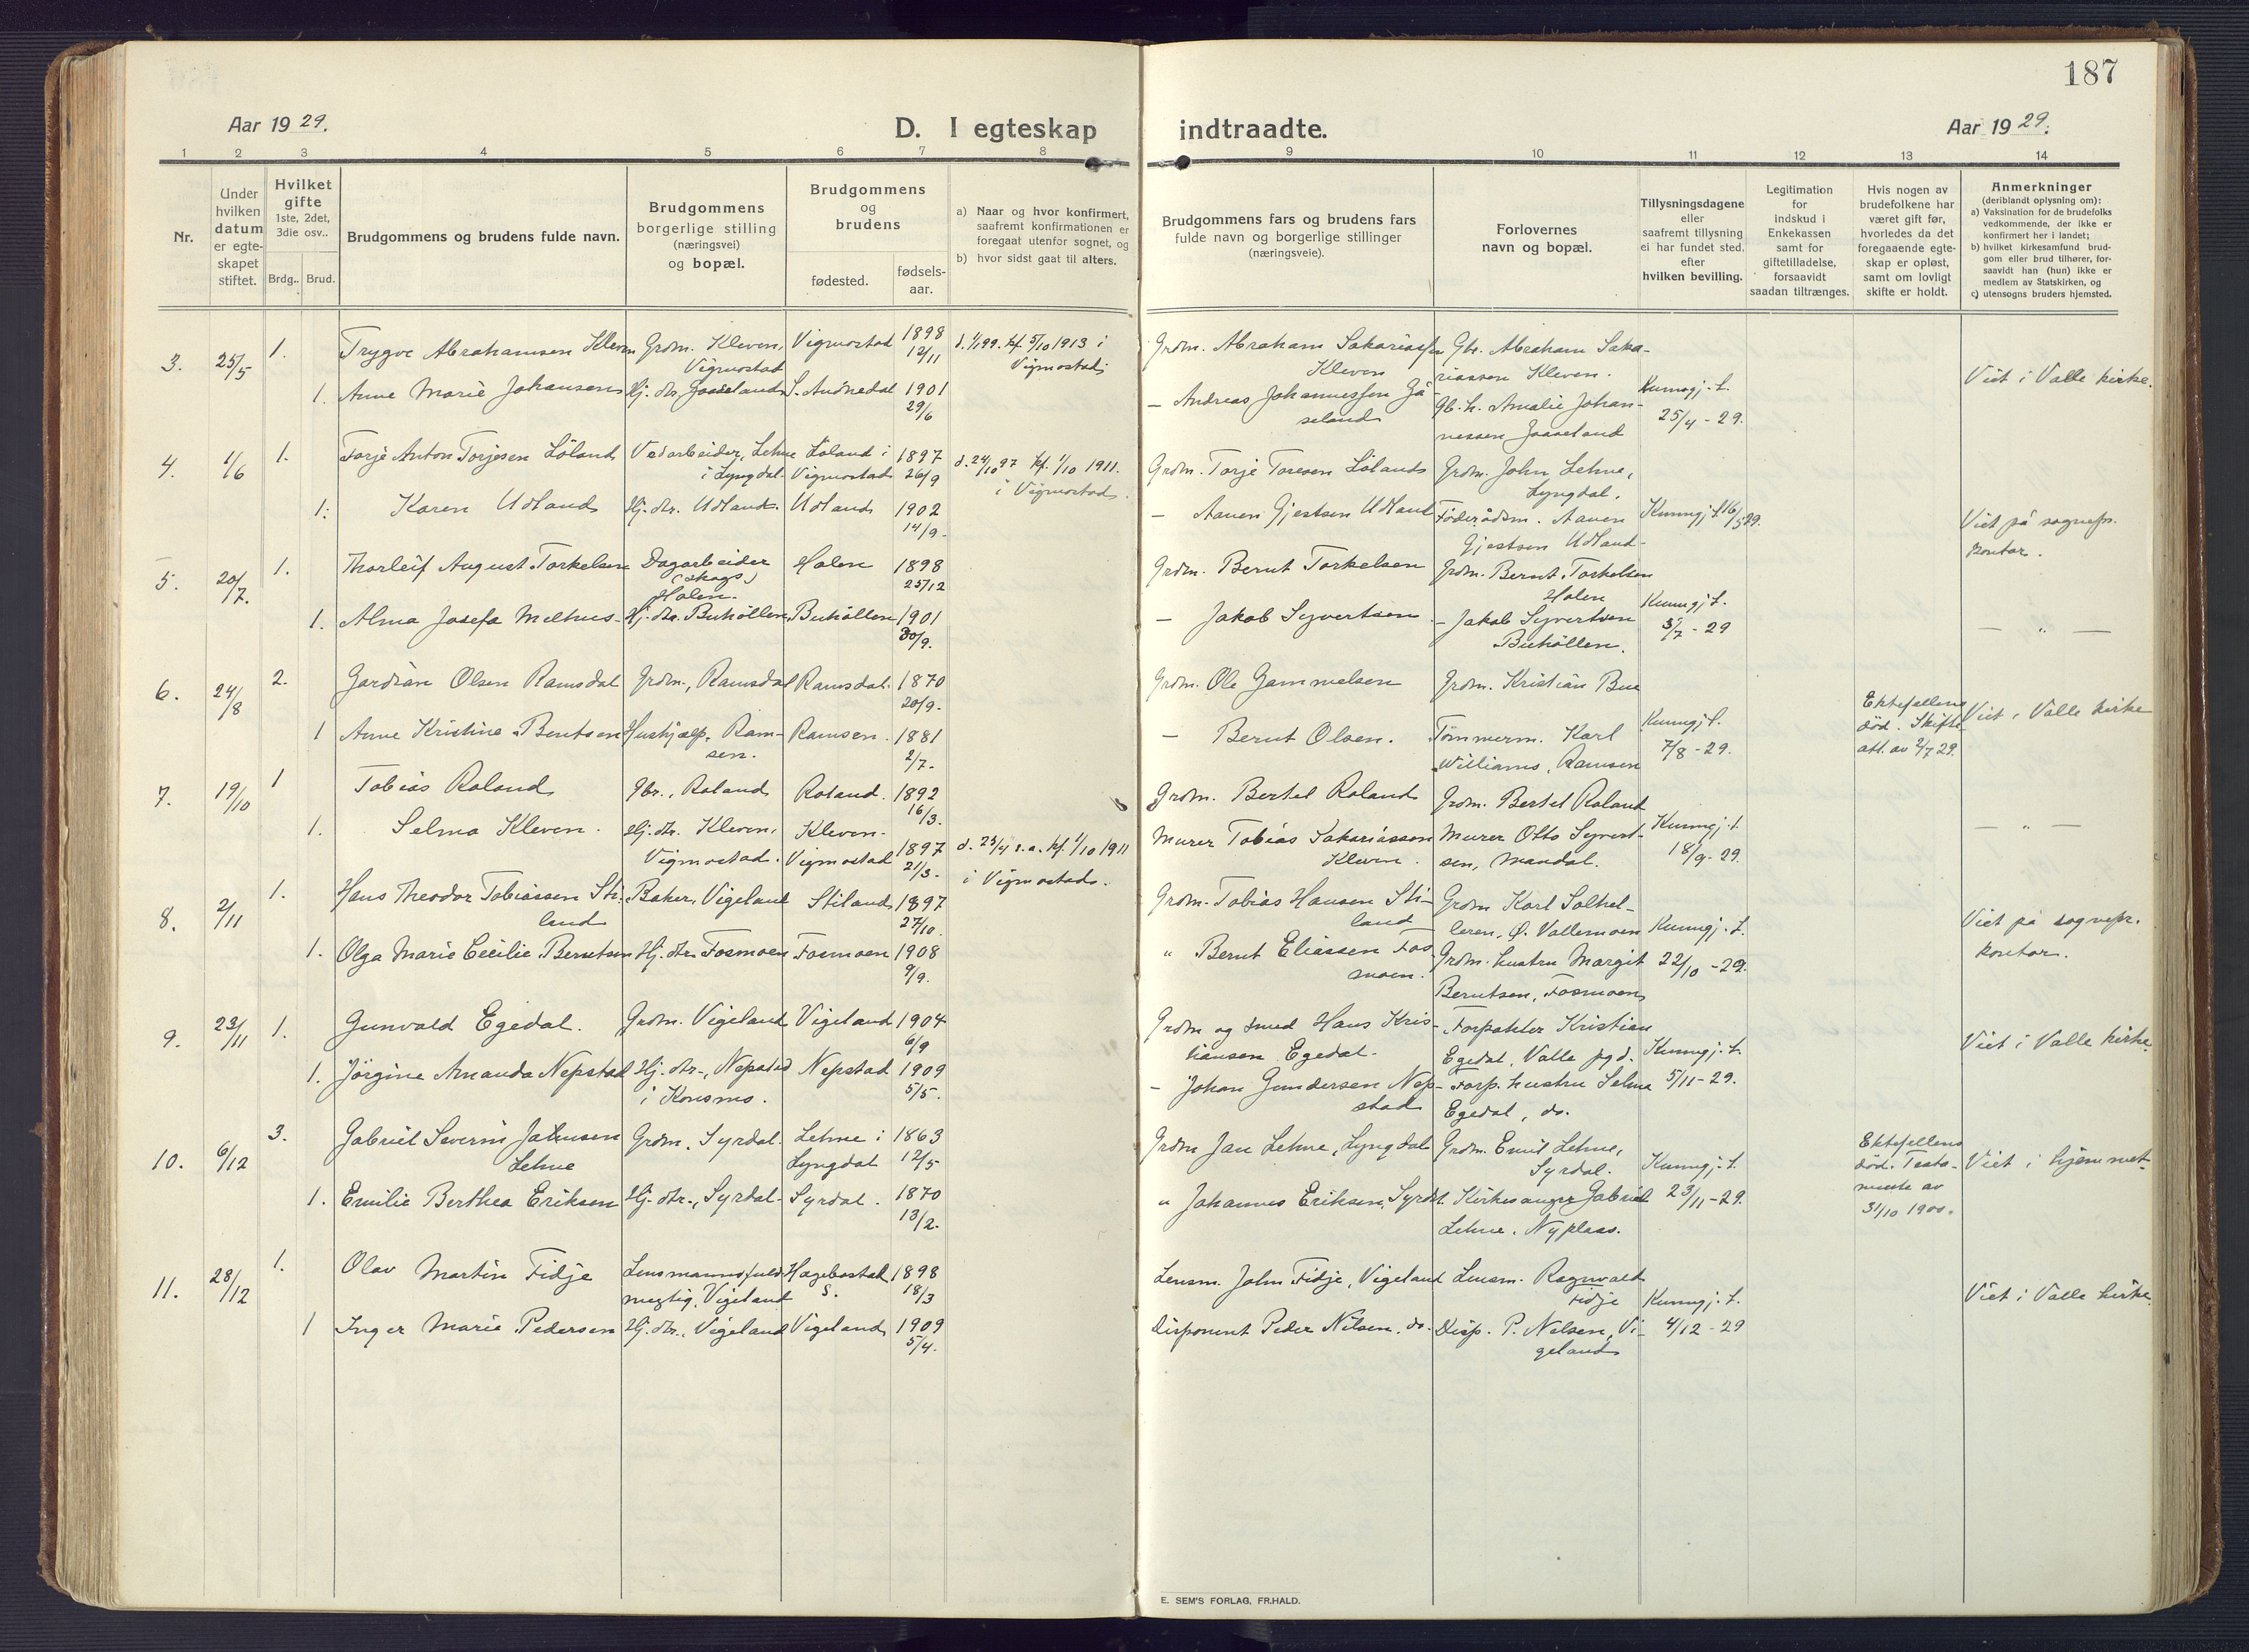 187
Aar 1929.
D. I egteskap indtraadte.
Aar 1929.
1 2 3 4 5 6 7 8 9 10 11 12 13 14
Nr.
Under hvilken datum er egteskapet stiftet.
Hvilket gifte 1ste, 2det, 3die osv..
Brdg.. Brud.
Brudgommens og brudens fulde navn.
Brudgommens borgerlige stilling (næringsvei) og bopæl.
Brudgommens og brudens
fødested.
fødselsaar.
a) Naar og hvor konfirmert, saafremt konfirmationen er foregaat utenfor sognet, og
b) hvor sidst gaat til alters.
Brudgommens fars og brudens fars fulde navn og borgerlige stillinger (næringsveie).
Forlovernes navn og bopæl.
Tillysningsdagene eller saafremt tillysning ei har fundet sted, efter hvilken bevilling.
Legitimation for indskud i Enkekassen samt for giftetilladelse, forsaavidt saadan tiltrænges.
Hvis nogen av brudefolkene har været gift før, hvorledes da det foregaaende egteskap er opløst, samt om lovligt skifte er holdt.
Anmerkninger (deriblandt oplysning om):
a) Vaksination for de brudefolks vedkommende, der ikke er konfirmert her i landet;
b) hvilket kirkesamfund brudgom eller brud tilhører, forsaavidt han (hun) ikke er medlem av Statskirken, og
c) utensogns bruders hjemsted.
3. 25/5 1. Trygve Abrahamsen Kleven Grdm. Kleven, Vigmostad Vigmostad 1898 12/11 d. 1/1 99. kf. 5/10 1913 i Vigmostad Grdm. Abraham Sakariassen Kleven Gbr. Abraham Sakariassen Kleven. Viet i Valle kirke.
1. Anne Marie Johansen Hj. dtr. Jaaseland S. Audnedal 1901 29/6 – Andreas Johannessen Jåseland Gb. h. Amalie Johannessen Jaaseland Kunngj. f. 25/4 - 29.
4. 1/6 1. Torje Anton Torjesen Löland Veiarbeider, Lehne i Lyngdal. Löland i Vigmostad 1897 26/9 d. 24/10 97 kf. 1/10 1911. i Vigmostad. Grdm. Torje Toresen Löland Grdm. John Lehne, Lyngdal.
1. Karen Udland Hj. dtr. Udland. Udland 1902 14/9. – Aanen Gjestsen Udland Föderådsm. Aanen Gjestsen Udland. Kunngj. f. 16/5 29. Viet på sognepr. kontor.
5. 20/7. 1. Thorleif August Torkelsen Dagarbeider (skogs) Holen. Holen 1898 25/12 Grdm. Bernt Torkelsen Grdm. Bernt Torkelsen Holen
1. Alma Josefa Melhus Hj. dtr. Buhöllen Buhöllen 1901 30/9. – Jakob Syvertsen. – Jakob Syvertsen Buhöllen. Kunngj f. 3/7 - 29 — " —
6. 24/8 2. Gardian Olsen Ramsdal Grdm., Ramsdal Ramsdal. 1870 20/9. Grdm. Ole Gammelsen Grdm. Kristian Bue Ektefellens död. Skifteatt. av 2/7 29. Viet i Valle kirke
1 Anne Kristine Bentsen Hushjælp. Ramsen. Ramsen. 1881 2/7. – Bernt Olsen. Tömmerm. Karl Williams, Ramsen Kunngj. f. 7/8 - 29.
7. 19/10 1 Tobias Roland Gbr., Roland Roland. 1892 16/3. Grdm. Bertel Roland Grdm. Bertel Roland
1. Selma Kleven. Hj. dtr. Kleven, Vigmostad. Kleven. Vigmostad 1897 21/3. d. 23/4 s.a. kf. 1/10 1911 i Vigmostad. Murer Tobias Sakariassen Kleven. Murer Otto Syvertsen, Mandal. Kunngj. f. 18/9 - 29. — " —
8. 2/11 1. Hans Theodor Tobiassen Stiland Baker, Vigeland Stiland 1897 27/10. Grdm. Tobias Hansen Stiland Grdm Karl Ö. Vallemoen
1. Olga Marie Cecilie Berntsen Hj. dtr. Fosmoen Fosmoen 1908 9/9. " Bernt Eliassen Fosmoen. Grdm. hustru Margit Berntsen, Fosmoen Kunngj. f. 22/10 - 29. Viet på sognepr. kontor.
9. 23/11 1. Gunvald Egedal. Grdm. Vigeland Vigeland 1904 6/9 Grdm og smed Hans Kristiansen Egedal. Forpakter Kristian Egedal, Valle pgd. Viet i Valle kirke.
1. Jörgine Amanda Nepstad Hj. dtr., Nepstad i Konsmo. Nepstad 1909 5/5. – Johan Gundersen Nepstad Forp. hustru Selma Egedal, do. Kunngj. f. 5/11 - 29.
10. 6/12 3. Gabriel Severin Johnsen Lehne Grdm. Syrdal. Lehne i Lyngdal 1863 12/5 Grdm Jan Lehne, Lyngdal Grdm. Emil Lehne, Syrdal. Ektefellens död. Testamente av 31/10 1900. Viet i hjemmet.
1. Emilie Berthea Eriksen Hj. dtr., Syrdal. Syrdal. 1870 13/2. " Johannes Eriksen, Syrdal. Kirkesanger Gabriel Lehne, Nyplass. Kunngj. f. 23/11 - 29.
11. 28/12 1. Olav Martin Fidje Lensmannsfuldmegtig, Vigeland Hægebostad S. 1898 18/3 Lensm. John Fidje, Vigeland Lensm. Ragnvald Fidje Viet i Valle kirke.
1 Inger Marie Pedersen Hj. dtr., Vigeland Vigeland 1909 5/4. Disponent Peder Nilsen, do. Disp. P. Nelsen, Vigeland Kunngj. f. 4/12 - 29
E. SEM'S FORLAG, FR.HALD.